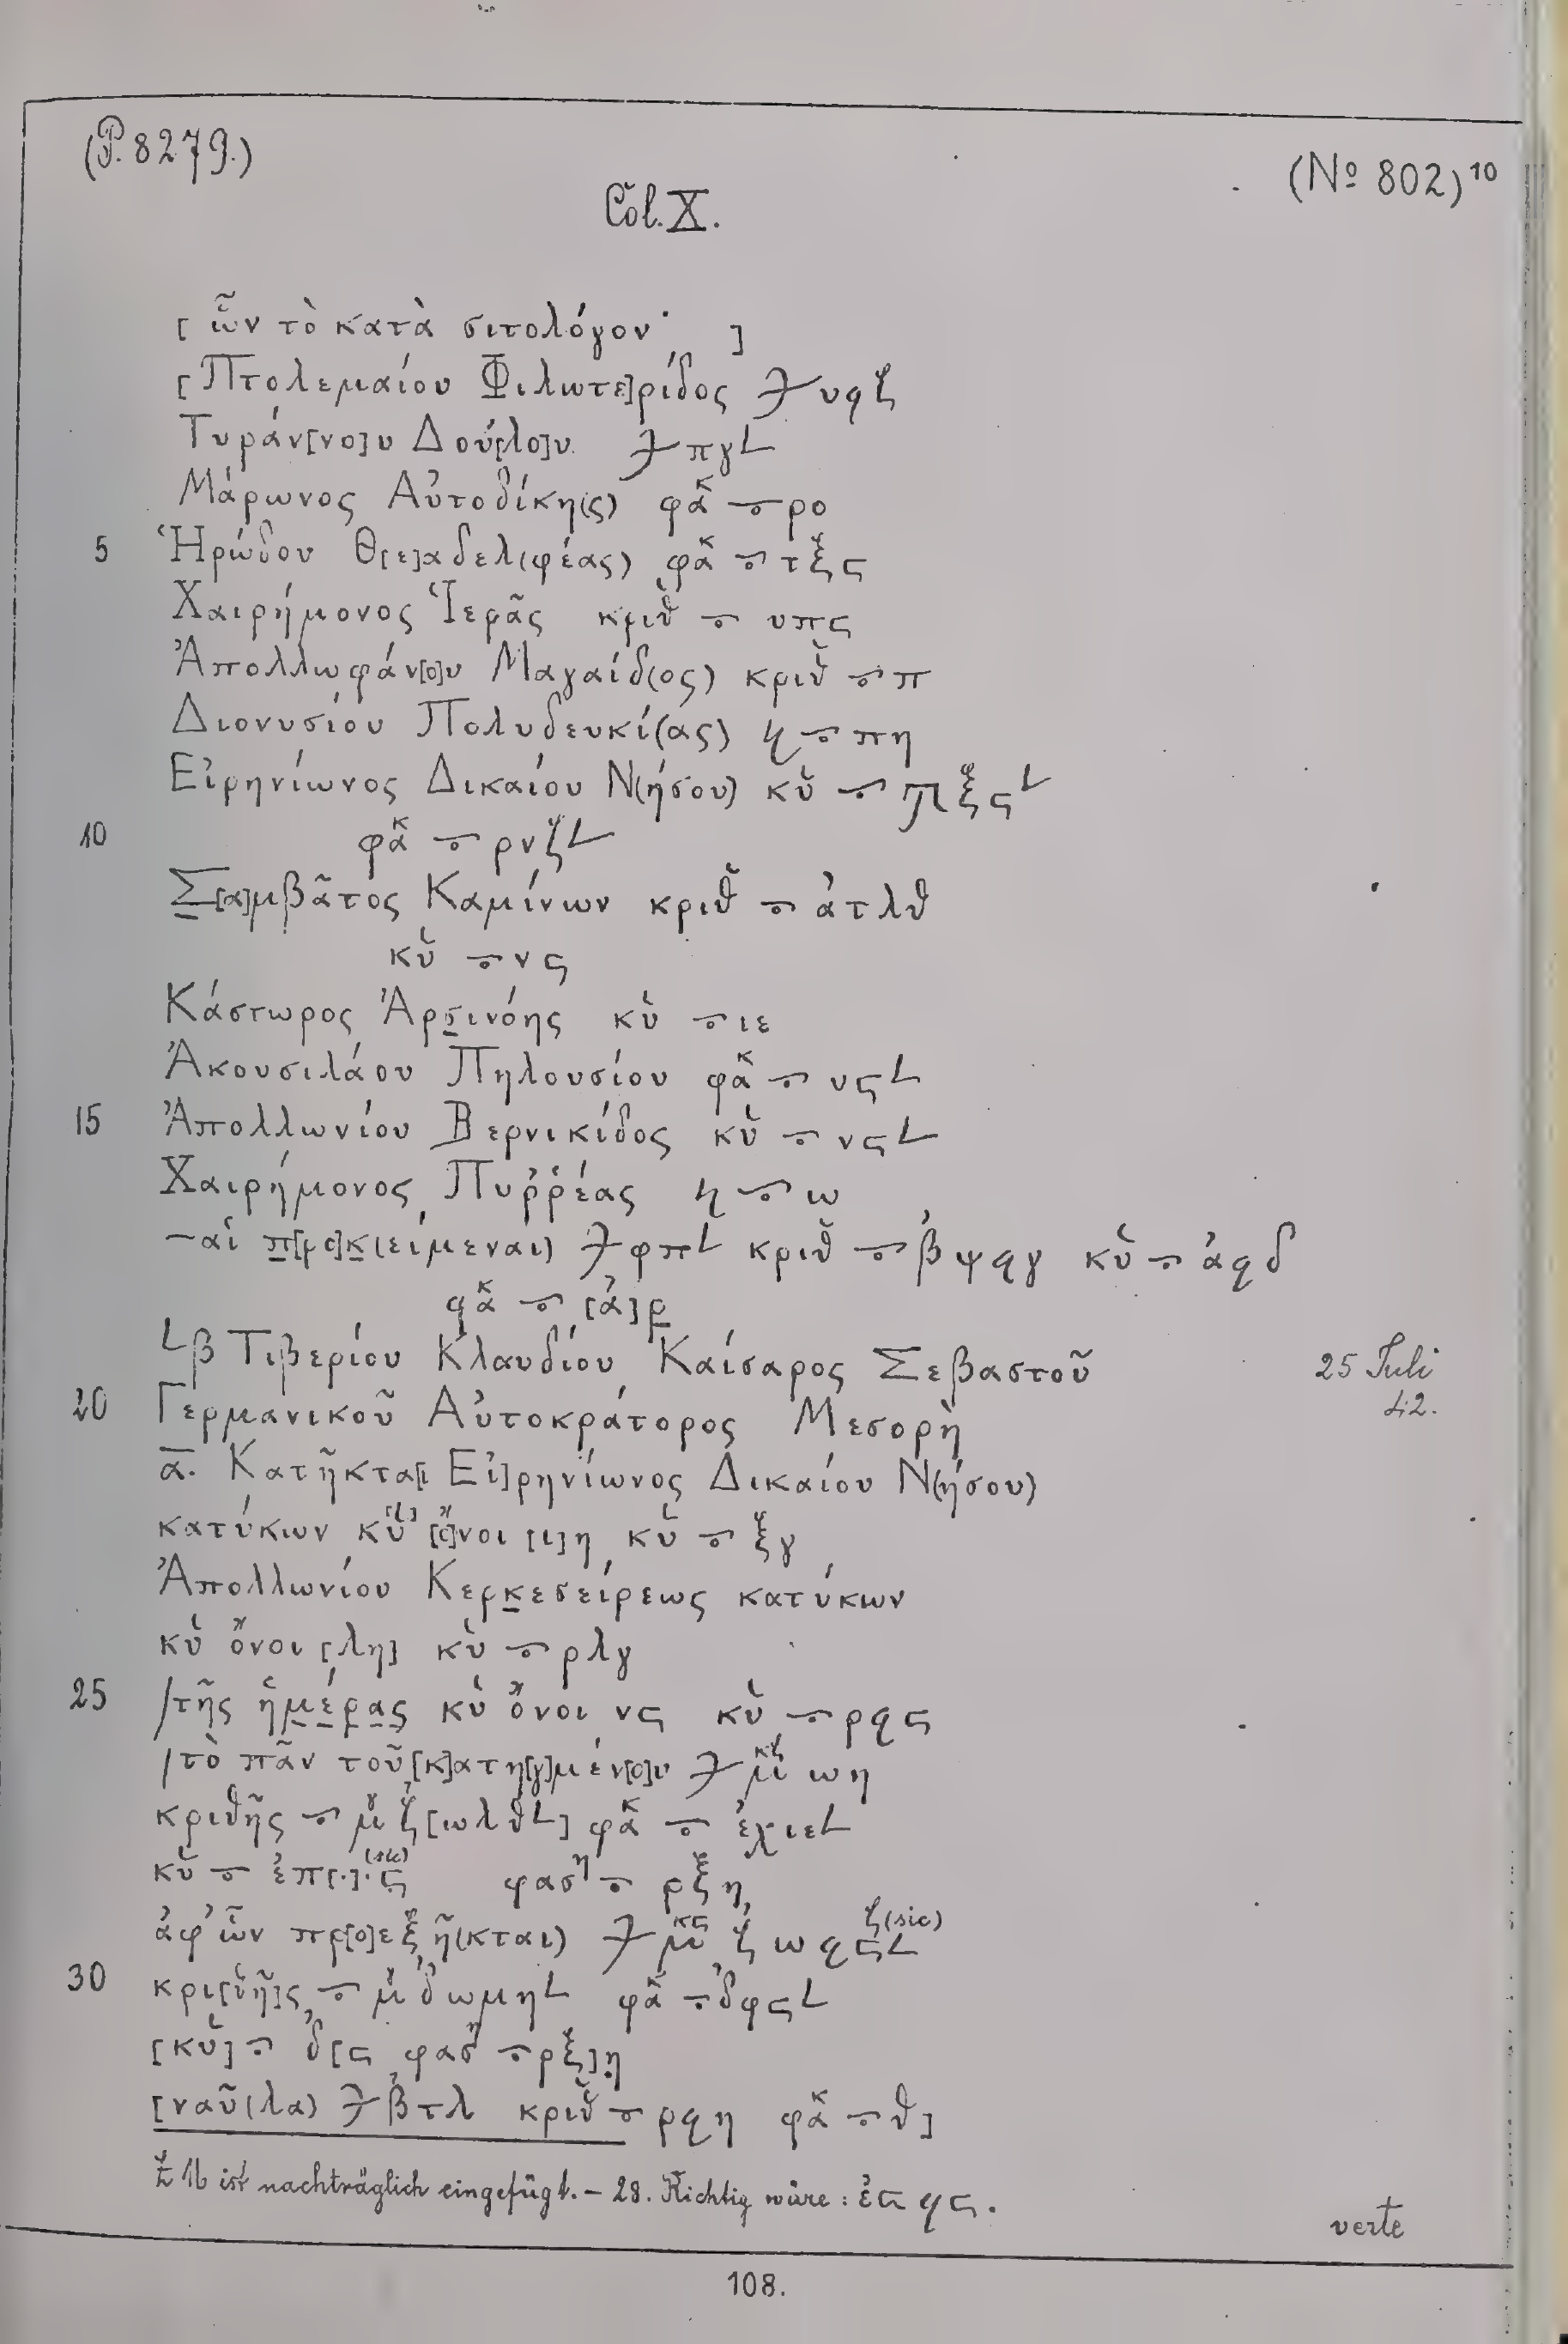 (P. 8279.)
(No 802) 10
Col. X.
[ὧν τὸ κατὰ σιτολόγον· ]
[Πτολεμαίου Φιλωτε]ρίδος 𐅽 υϙζ
Τυράν[νο]υ Δού[λο]υ 𐅽 πγ∟
Μάρωνος Αὐτοδίκη(ς) φακ ⨪ ρο
5 Ἡρώδου Θ[ε]αδελ(φέας) φακ ⨪ τξϛ
Χαιρήμονος Ἱερᾶς κριθ ⨪ υπϛ
Ἀπολλωφάν[ο]υ Μαγαίδ(ος) κριθ ⨪ π
Διονυσίου Πολυδευκί(ας) ⨪ πη
Εἰρηνίωνος Δικαίου Ν(ήσου) κυ ⨪ ϡξϛ∟
10 φακ ⨪ ρνζ∟
Σ[α]μβᾶτος Καμίνων κριθ ⨪ ἀτλθ
κυ ⨪ νϛ
Κάστωρος Ἀρσινόης κυ ⨪ ιε
Ἀκουσιλάου Πηλουσίου φακ ⨪ υϛ∟
15 Ἀπολλωνίου Βερνικίδος κυ ⨪ νϛ∟
Χαιρήμονος Πυῤῥέας ⨪ ω
—αἱ π[ρο]κ(είμεναι) 𐅽 φπ∟ κριθ ⨪ βψϙγ κυ ⨪ ἀϙδ
φακ ⨪ [ἀ]ρ
∟β Τιβερίου Κλαυδίου Καίσαρος Σεβαστοῦ 25 Juli
20 Γερμανικοῦ Αὐτοκράτορος Μεσορὴ 42.
ᾱ. Κατῆκτα[ι Εἰ]ρηνίωνος Δικαίου Ν(ήσου)
κατύκων κυ [ὄ]νοι [ι]η κυ ⨪ ξγ
Ἀπολλωνίου Κερκεσείρεως κατύκων
κυ ὄνοι [λη] κυ ⨪ ρλγ
25 /τῆς ἡμέρας κυ ὄνοι νϛ κυ ⨪ ρϙϛ
/τὸ πᾶν τοῦ [κ]ατη[γ]μέν[ο]υ 𐅽 μκζ ωη
κριθῆς ⨪ μγ ζ[ωλθ∟] φακ ⨪ ἐχιε∟
κυ ⨪ ἐπ[.].ϛ (sic) φαση ⨪ ρξη
ἀφ' ὧν πρ[ο]εξῆ(κται) 𐅽 μκϛ ζωϙϛ∟ ζ(sic)
30 κρι[θῆ]ς ⨪ μγ δωμη∟ φακ ⨪ δφϛ∟
[κυ] ⨪ δ[ϛ φαση ⨪ ρξ]η
[ναῦ(λα) 𐅽 βτλ κριθ ⨪ ρϙη φακ ⨪ θ]
Z 16 ist nachträglich eingefügt. – 28. Richtig wäre: ἐϛϙϛ.
verte
108.